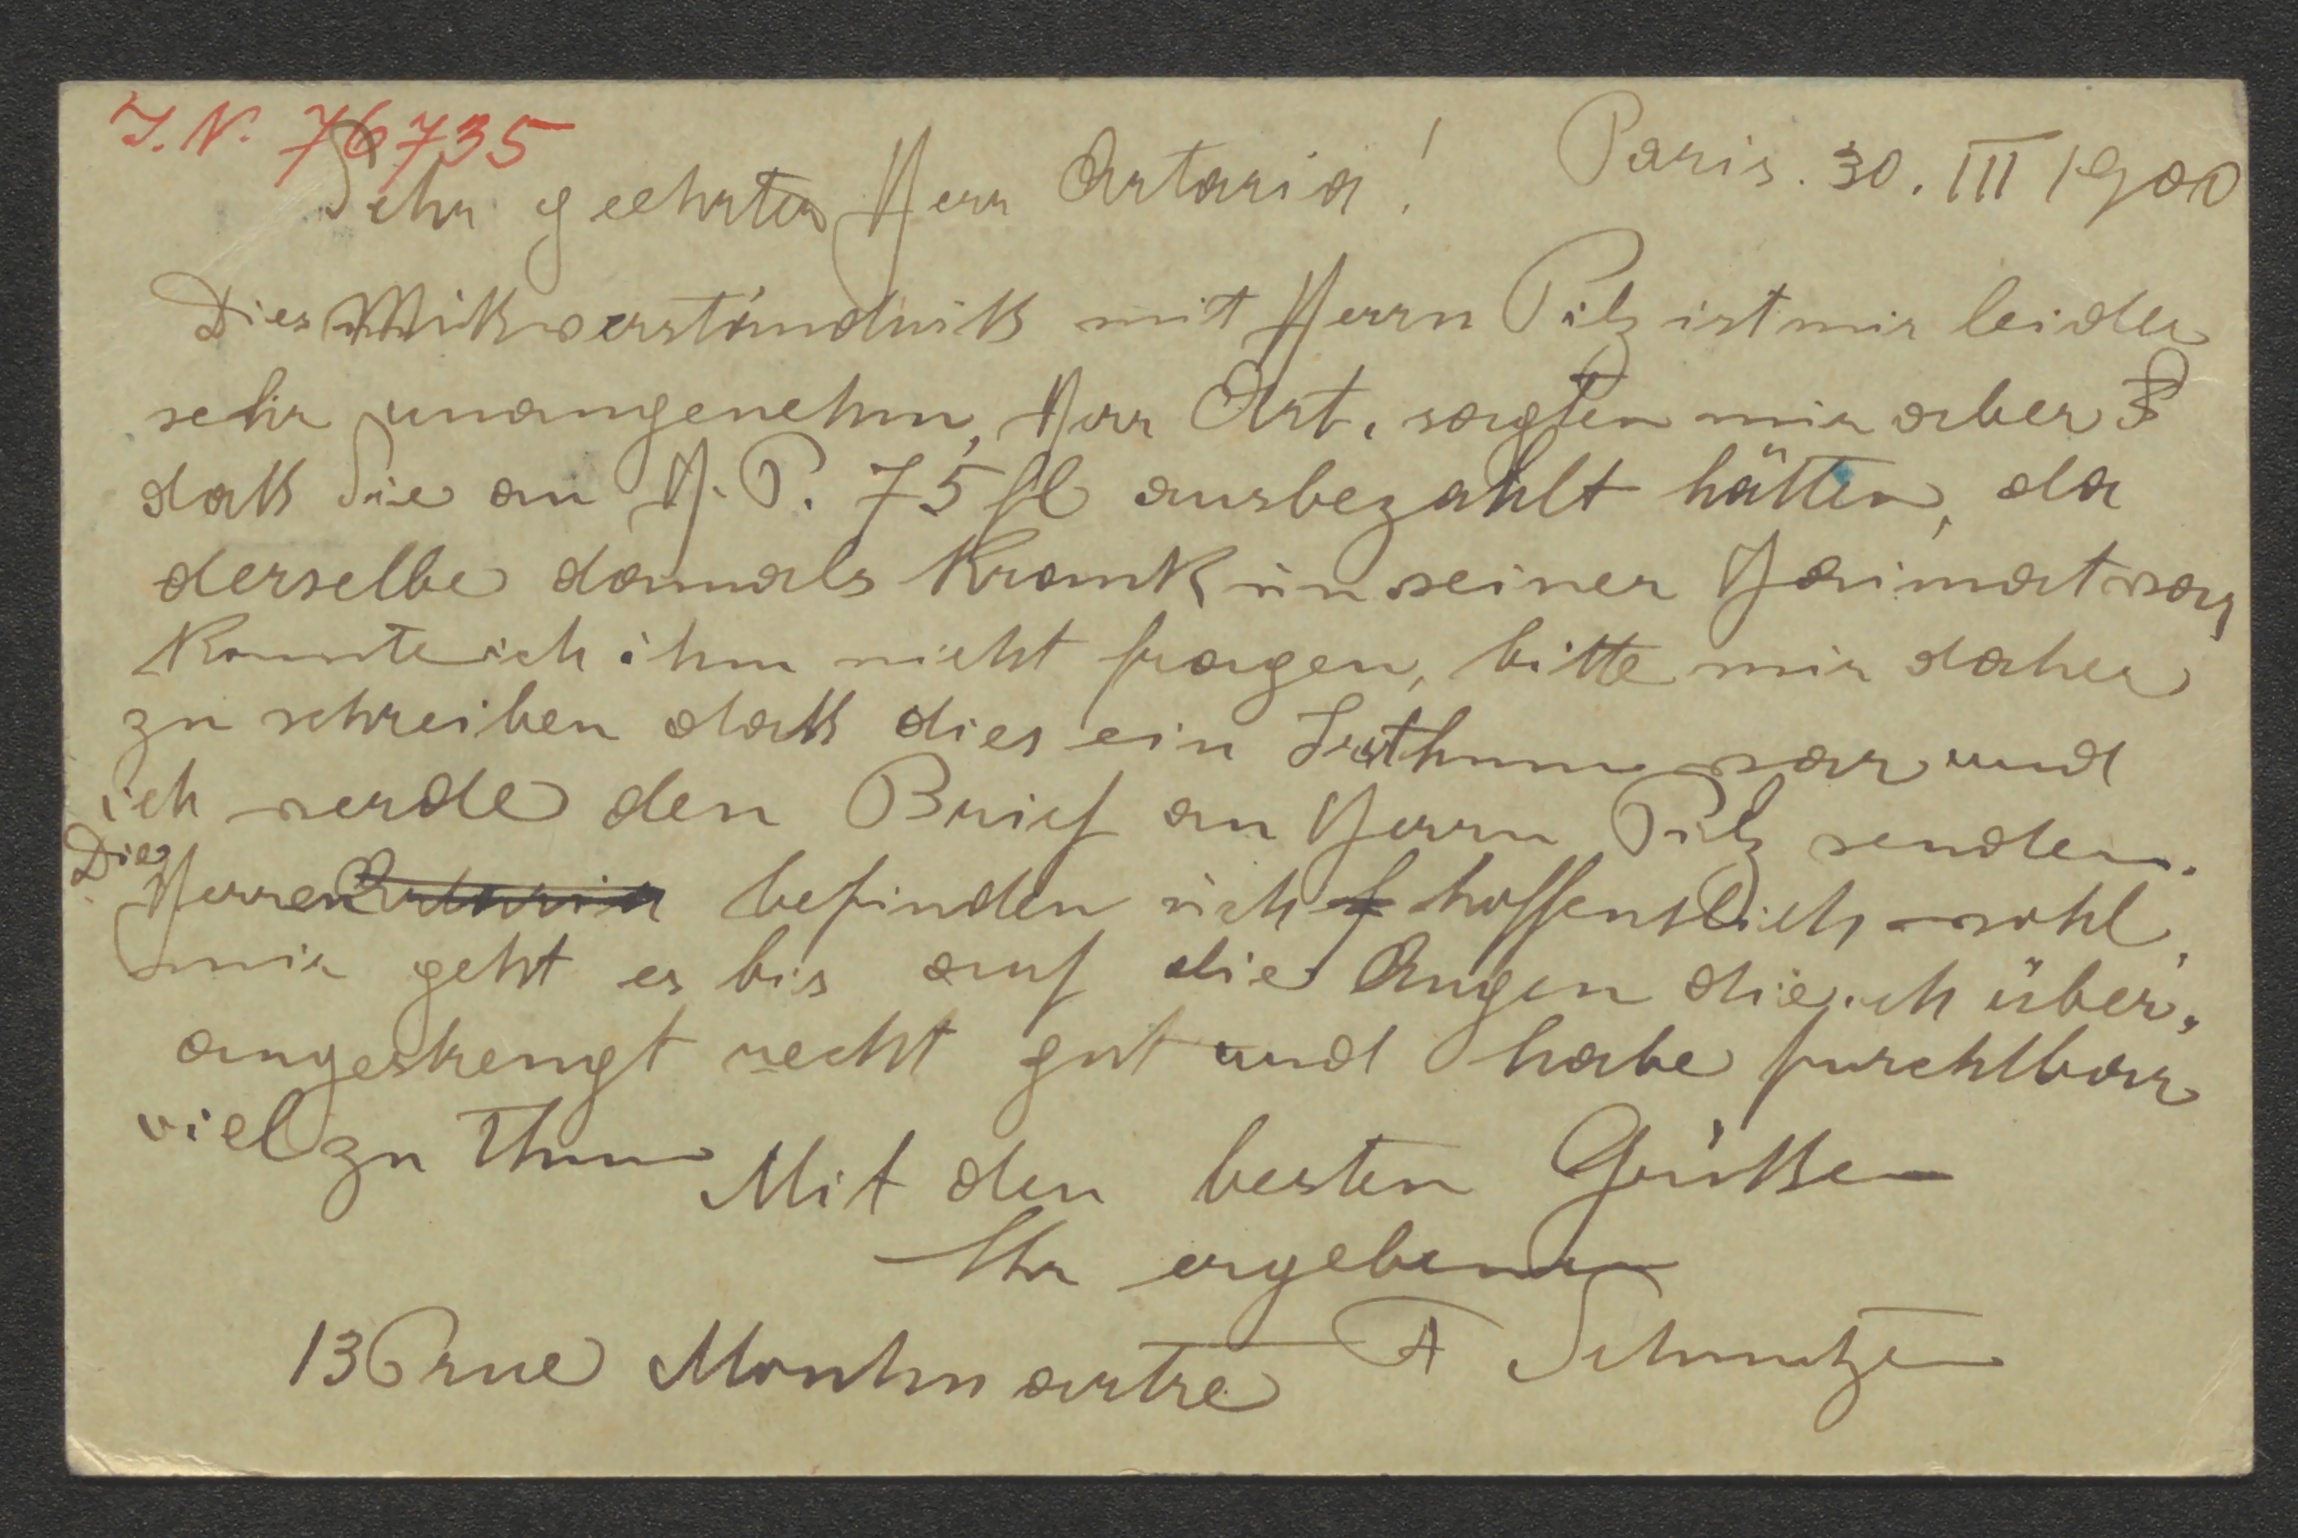 I.N. 76735
Paris. 30. III 1900
Sehr geehrter Herr Artaria!
Dies Mißverständniß mit Herrn Pilz ist mir leider
sehr unangenehm, Herr Art. sagten mir aber
daß Sie an H. P. 75 fl ausbezahlt hätten, da
derselbe damals Krank in seiner Haimat war
Konnte ich ihm nicht fragen, bitte mir daher
zu schreiben daß dies ein Irrthum war und
ich werde den Brief an Herrn Pilz senden.
Die
Herren Artaria befinden sich hoffentlich wohl,
mir geht es bis auf die Augen die ich über,
angestrengt recht gut und habe furchtbar
viel zu Thun
Mit den besten Grüßen
Ihr ergebener
136 rue Montmartre A Schmutzer